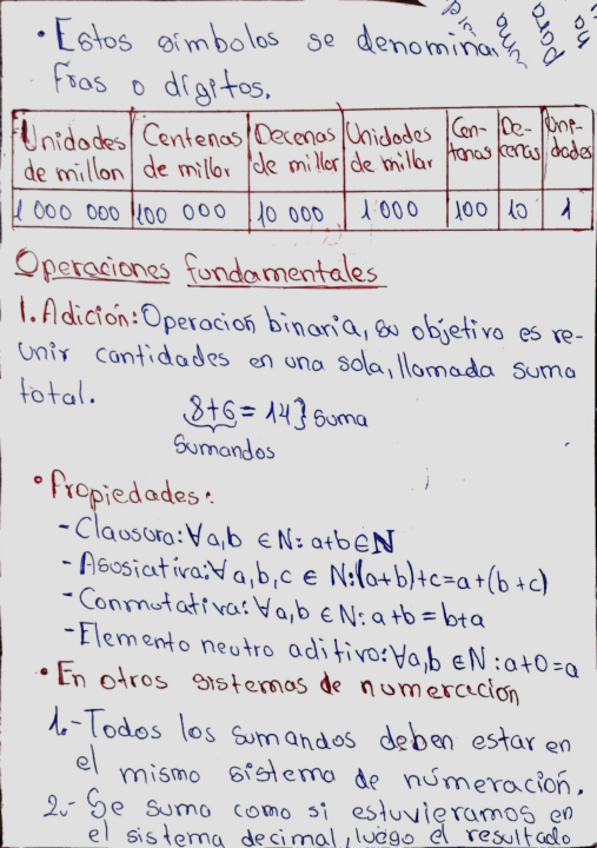 • Estos símbolos se denomina
fras o dígitos.
Unidades de millon | Centenas de millar | Decenas de millar | Unidades de millar | Cen-tenas | De-cenas | Uni-dades
1 000 000 | 100 000 | 10 000 | 1 000 | 100 | 10 | 1
Operaciones fundamentales
1. Adición: Operación binaria, su objetivo es re-
unir cantidades en una sola, llamada suma
total.
8+6 = 14} suma
Sumandos
• Propiedades:
- Clausura: ∀a,b ∈ N: a+b ∈ N
- Asosiativa: ∀a,b,c ∈ N: (a+b)+c=a+(b+c)
- Conmutativa: ∀a,b ∈ N: a+b = b+a
- Elemento neutro aditivo: ∀a,b ∈ N: a+0=a
• En otros sistemas de numeracion
1.- Todos los sumandos deben estar en
el mismo sistema de númeración.
2.- Se suma como si estuvieramos en
el sistema decimal, luego el resultado
para
una